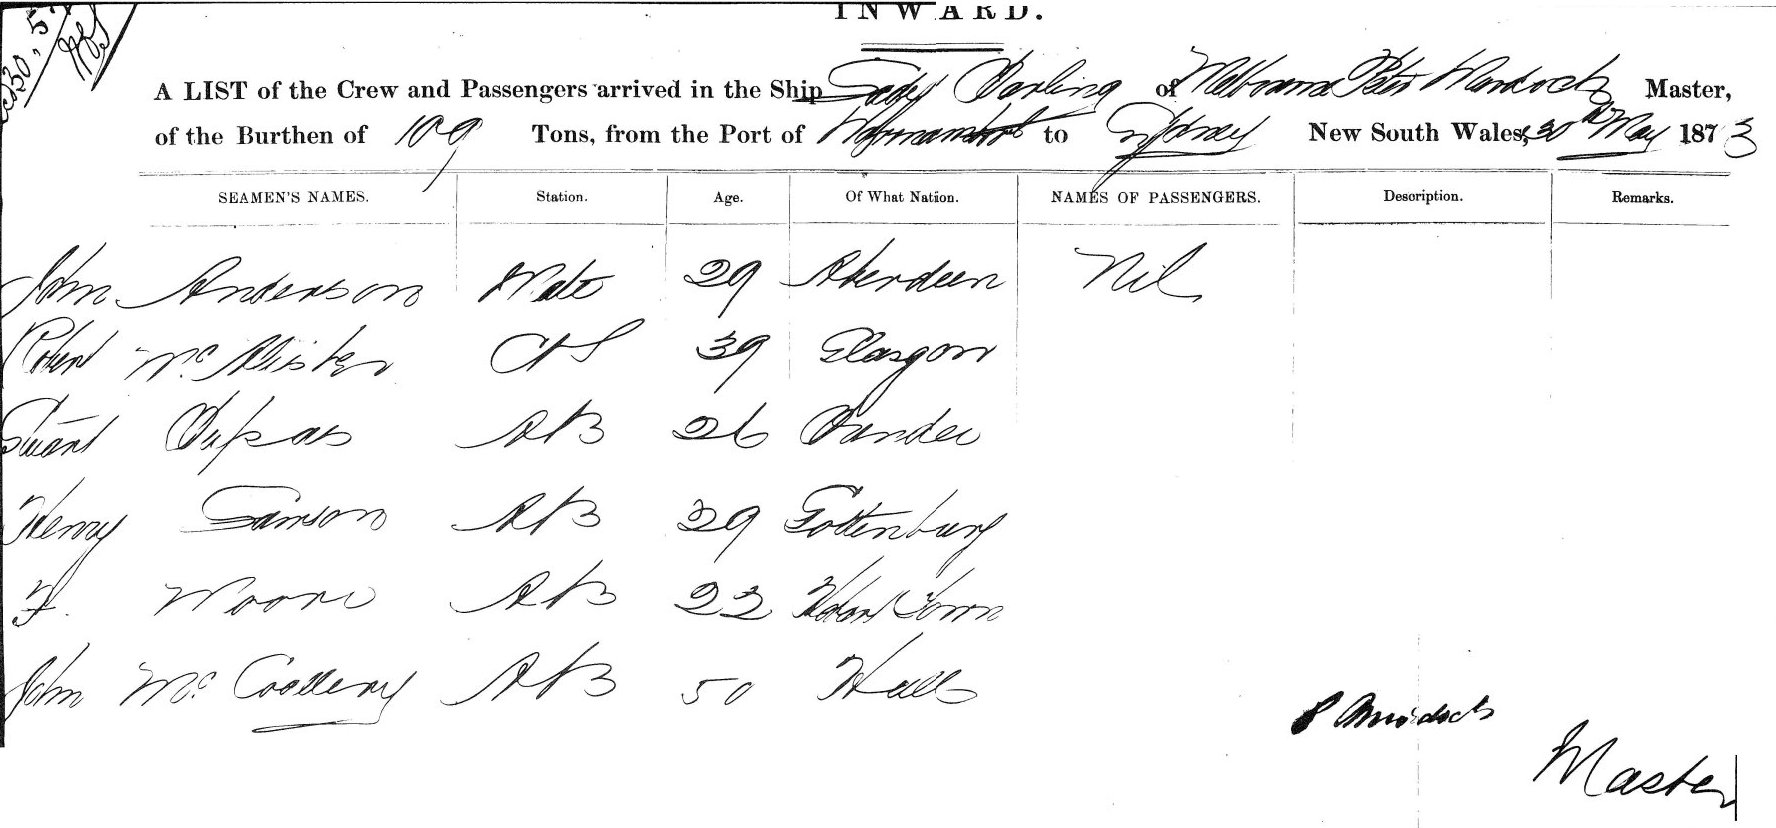 INWARD.
A LIST of the Crew and Passengers arrived in the Ship Lady Darling of Melbourne Peter Murdoch Master,
of the Burthen of 109 Tons, from the Port of to Sydney New South Wales, 30th May 1873
SEAMEN'S NAMES. Station. Age. Of What Nation. NAMES OF PASSENGERS. Description. Remarks.
John Anderson Mate 29 Aberdeen Nil
Robert McAlister 39 Glasgow
Stuart AB 26 Dundee
Henry Samson AB 29 Gottenburg
F. Moore AB 22 Hobart Town
John Mc AB 50 Hull
P Murdoch
Master